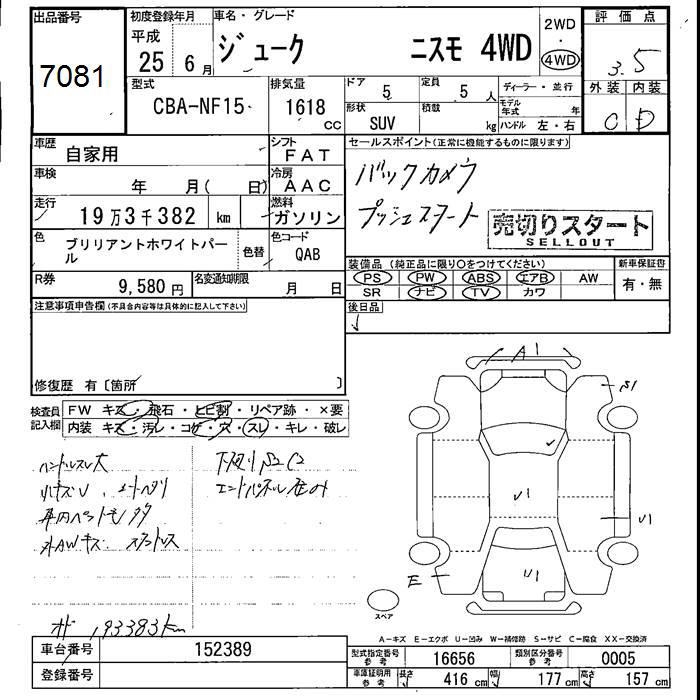 出品番号
7081
初度登録年月
平成
25 6月
車名・グレード
ジューク ニスモ 4WD
2WD
・
4WD
評価点
3.5
外装 内装
C D
型式
CBA-NF15
排気量
1618
CC
ドア
5
定員
5 人
形状
SUV
積載
kg
ディーラー・並行
モデル年式 年
ハンドル 左・右
車歴
自家用
シフト
FAT
車検
年 月( 日)
冷房
AAC
走行
19万3千382 km
燃料
ガソリン
色
ブリリアントホワイトパール
色替
色コード
QAB
R券
9,580円
名変通知期限
月 日
セールスポイント(正常に機能するものに限ります)
バックカメラ
プッシュスタート
売切りスタート
SELLOUT
装備品(純正品に限り○をつけてください)
PS PW ABS エアB AW
SR ナビ TV カワ
新車保証書
有・無
後日品
注意事項申告欄(不具合内容等は具体的に記入して下さい)
修復歴 有〔箇所 〕
検査員
記入欄
FW キズ・飛石・ヒビ割・リペア跡・×要
内装 キズ・汚レ・コゲ・穴・スレ・キレ・破レ
ハンドルスレ大
下廻りS2C2
193383km
A1
S1
U1
U1
U1
E
スペア
A-キズ E-エクボ U-凹み W-補修跡 S-サビ C-腐食 XX-交換済
車台番号
152389
登録番号
型式指定番号
参考
16656
類別区分番号
参考
0005
車庫証明用
参考
長さ
416 cm
幅
177 cm
高さ
157 cm